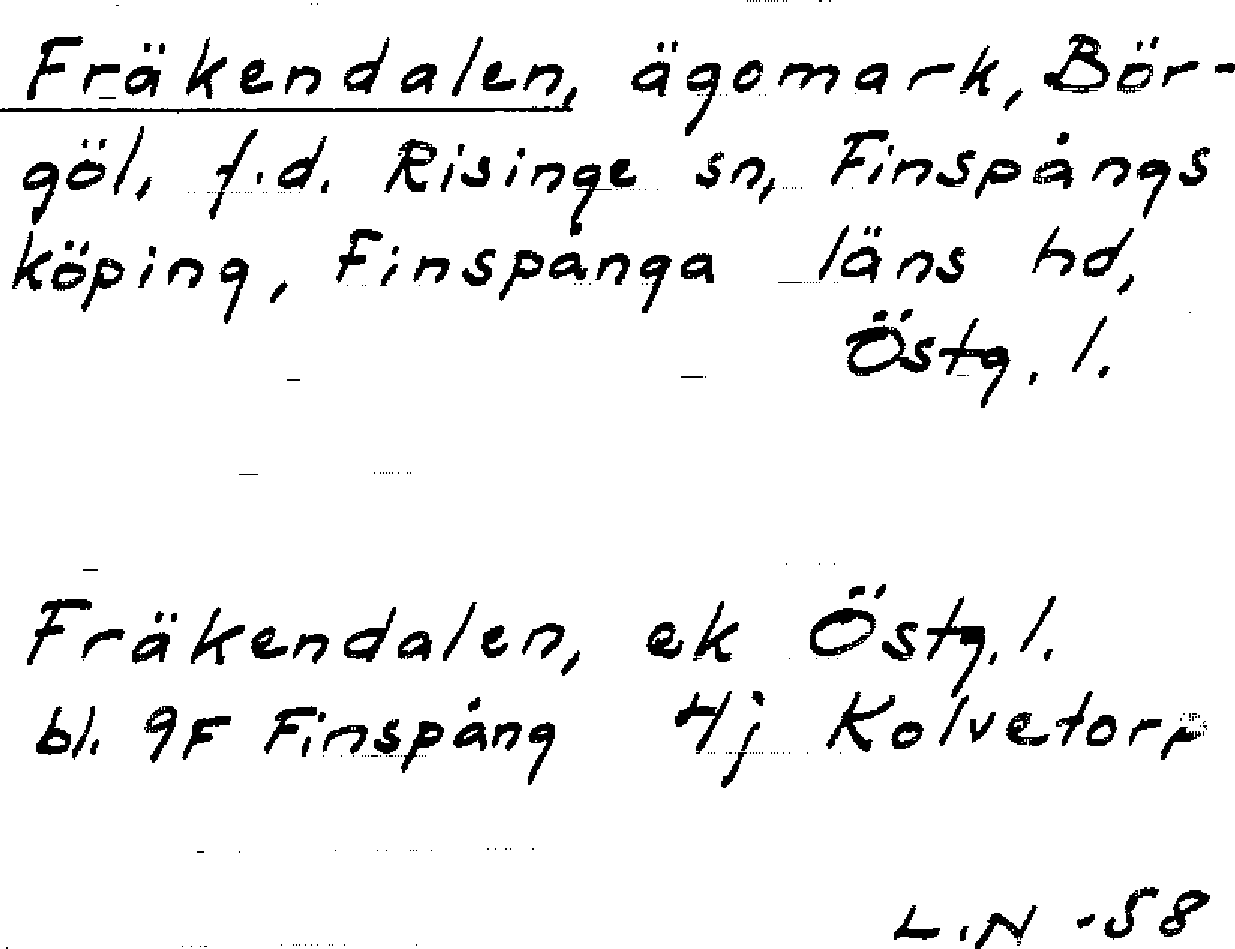 Fräkendalen, ägomark, Bör-
göl, f.d. Risinge sn, Finspångs
köping, Finspånga läns hd,
Östg. l.
Fräkendalen, ek Östg. l.
bl. 9F Finspång 4j Kolvetorp
L.N -58